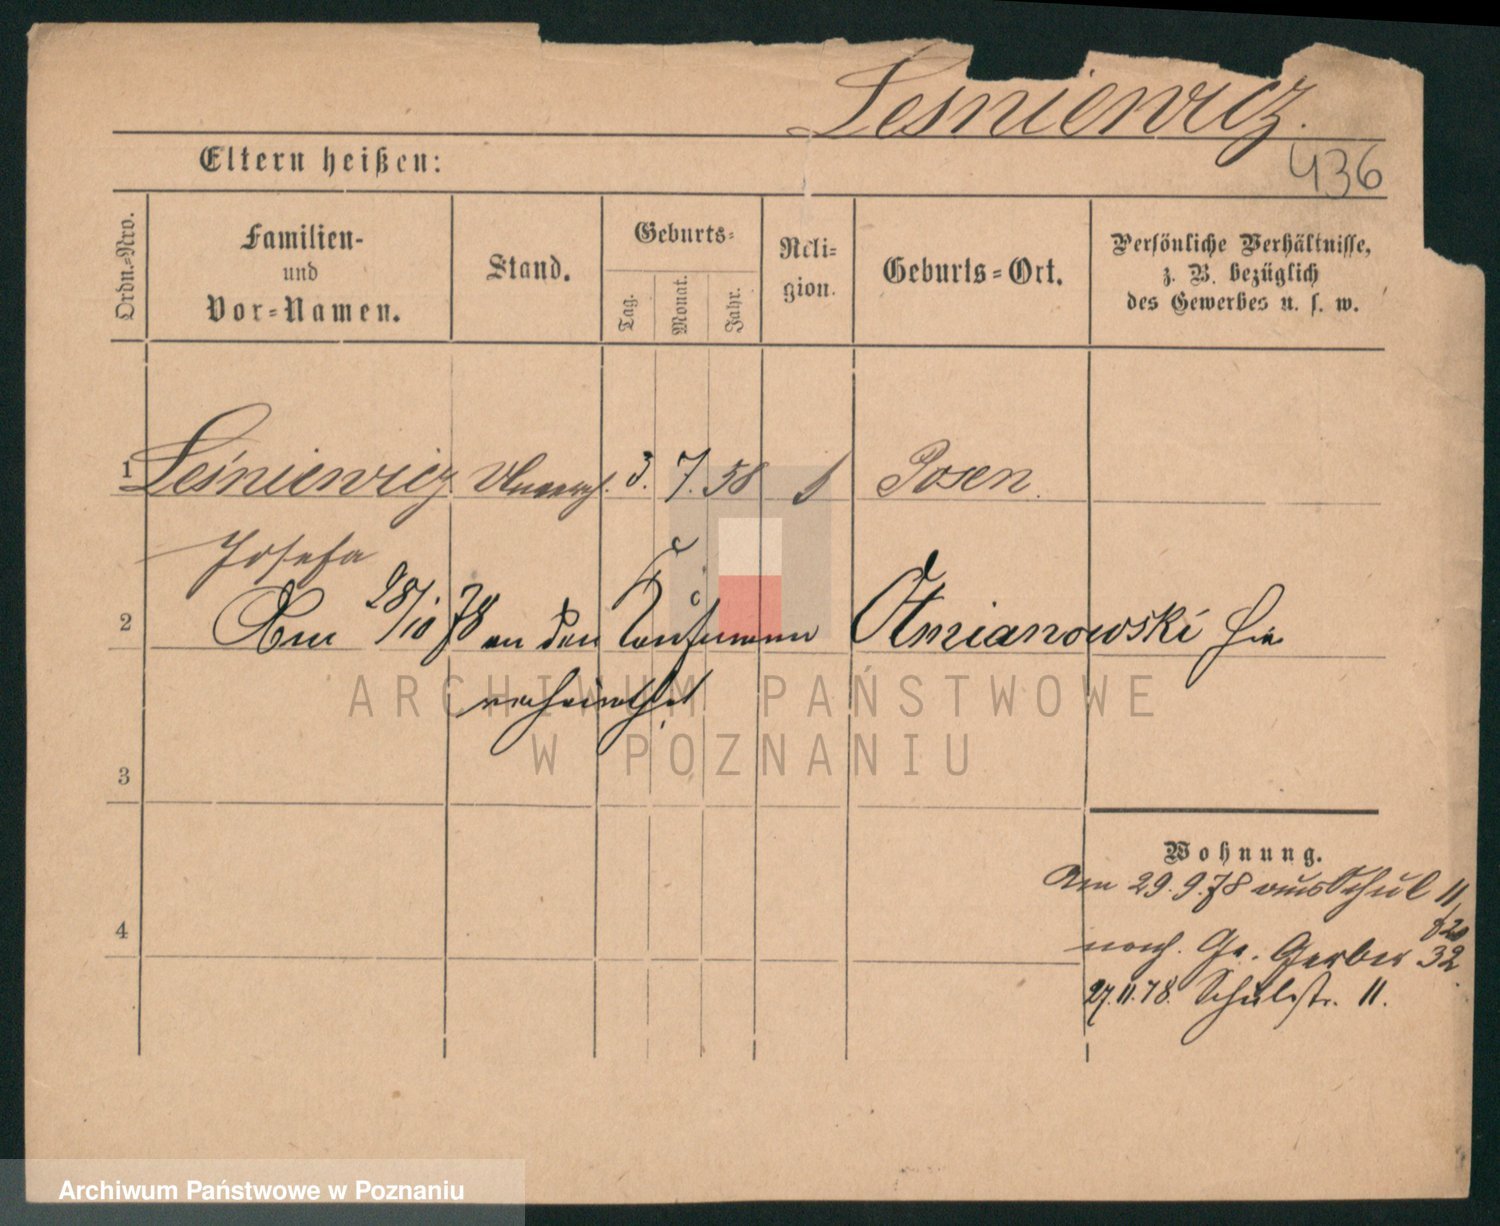 Leśniewicz.
436
Eltern heißen:
Ordn.-Nro.
Familien-
und
Vor-Namen.
Stand.
Geburts-
Tag.
Monat.
Jahr.
Reli-
gion.
Geburts-Ort.
Persönliche Verhältnisse,
z. B. bezüglich
des Gewerbes u. s. w.
1 Leśniewicz 3. 7. 58 Posen.
Josefa
2 Am 28/10 78 an den Kaufmann Otmianowski hie
verheirathet
ARCHIWUM PAŃSTWOWE
W POZNANIU
3
Wohnung.
Am 29.9.78 aus Schul 11
4
nach. Gr. Gerber 32
27.11.78. Schulstr. 11.
Archiwum Państwowe w Poznaniu